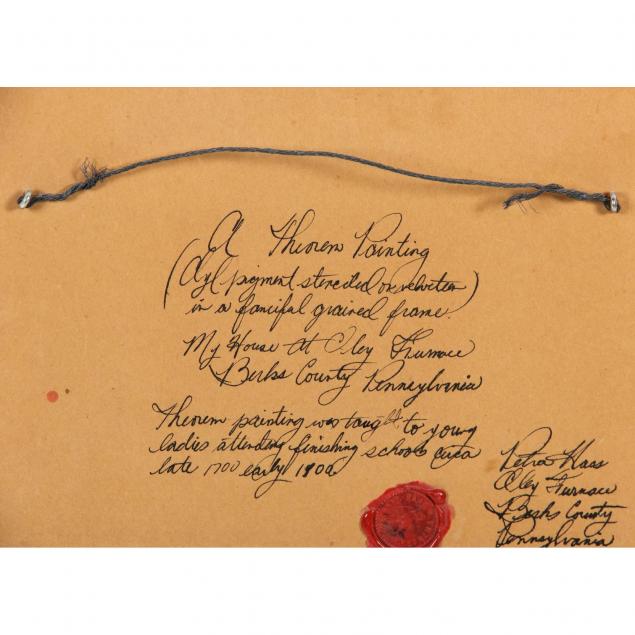 A Theorem Painting
(dye pigment stenciled on velveteen)
in a fanciful grained frame.
My House at Oley Furnace
Berks County Pennsylvania
Theorem painting was taught to young
ladies attending finishing schools circa
late 1700 early 1800
Petra Haas
Oley Furnace
Berks County
Pennsylvania